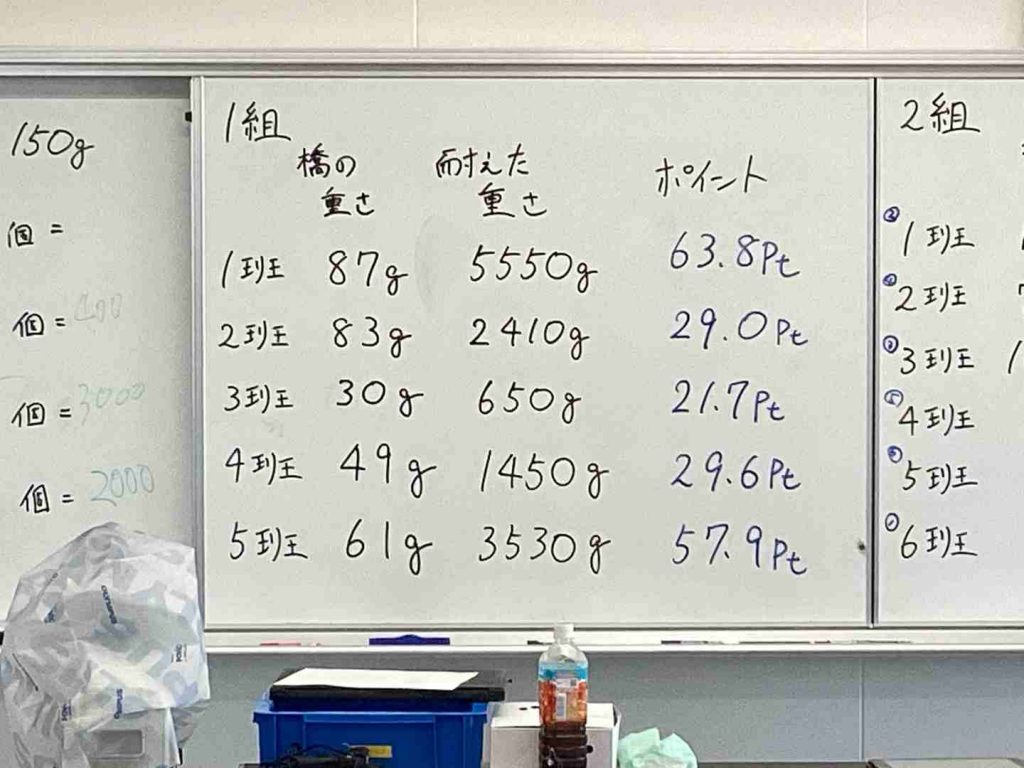 150g
個 =
個 = 400
個 = 3000
個 = 2000
1組
橋の重さ 耐えた重さ ポイント
1班 87g 5550g 63.8Pt
2班 83g 2410g 29.0Pt
3班 30g 650g 21.7Pt
4班 49g 1450g 29.6Pt
5班 61g 3530g 57.9Pt
2組
1班
2班
3班 1
4班
5班
6班